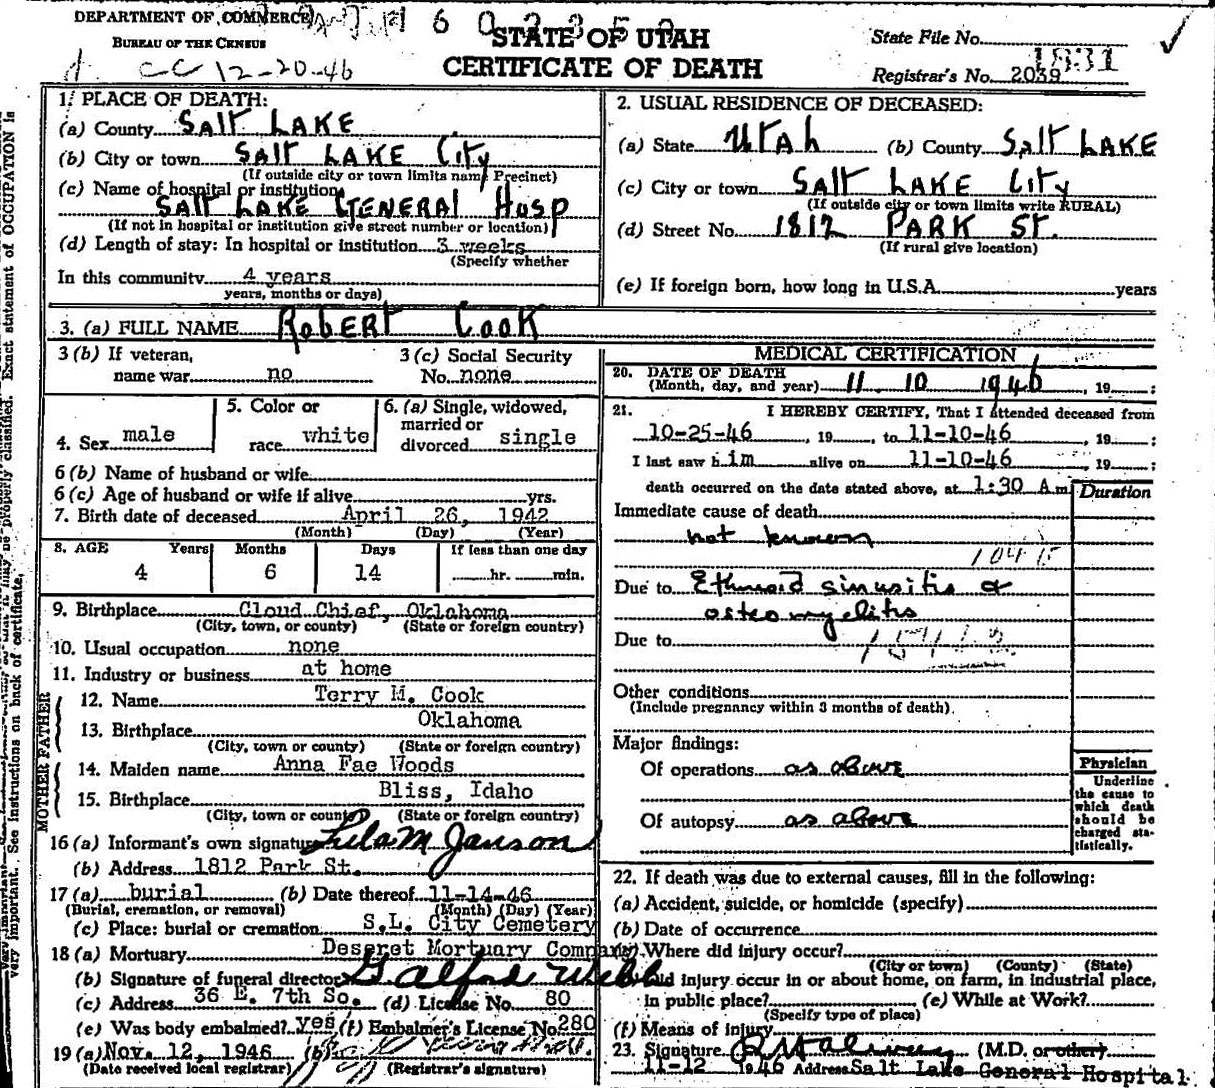 DEPARTMENT OF COMMERCE
BUREAU OF THE CENSUS
CC 12-20-46
STATE OF UTAH
CERTIFICATE OF DEATH
State File No.
1831
Registrar's No. 2039
1. PLACE OF DEATH:
(a) County SALT LAKE
(b) City or town SALT LAKE City
(If outside city or town limits name Precinct)
(c) Name of hospital or institution
SALT LAKE GENERAL HOSP
(If not in hospital or institution give street number or location)
(d) Length of stay: In hospital or institution 3 weeks
(Specify whether
In this community 4 years
years, months or days)
2. USUAL RESIDENCE OF DECEASED:
(a) State UTAH (b) County SALT LAKE
(c) City or town SALT LAKE City
(If outside city or town limits write RURAL)
(d) Street No. 1812 PARK ST.
(If rural give location)
(e) If foreign born, how long in U.S.A. years
3. (a) FULL NAME ROBERT COOK
3 (b) If veteran, name war no
3 (c) Social Security No. none
4. Sex male
5. Color or race white
6. (a) Single, widowed, married or divorced single
6 (b) Name of husband or wife
6 (c) Age of husband or wife if alive yrs.
7. Birth date of deceased April 26, 1942
(Month) (Day) (Year)
8. AGE Years Months Days If less than one day
4 6 14 hr. min.
9. Birthplace Cloud Chief, Oklahoma
(City, town, or county) (State or foreign country)
10. Usual occupation none
11. Industry or business at home
FATHER
12. Name Terry M. Cook
13. Birthplace Oklahoma
(City, town or county) (State or foreign country)
MOTHER
14. Maiden name Anna Fae Woods
15. Birthplace Bliss, Idaho
(City, town or county) (State or foreign country)
16 (a) Informant's own signature Lula M Janson
(b) Address 1812 Park St.
17 (a) burial (b) Date thereof 11-14-46
(Burial, cremation, or removal) (Month) (Day) (Year)
(c) Place: burial or cremation S.L. City Cemetery
18 (a) Mortuary Deseret Mortuary Company
(b) Signature of funeral director Webb
(c) Address 36 E. 7th So. (d) License No. 80
(e) Was body embalmed? yes (f) Embalmer's License No 280
19 (a) Nov. 12, 1946 (b)
(Date received local registrar) (Registrar's signature)
MEDICAL CERTIFICATION
20. DATE OF DEATH
(Month, day, and year) 11 10 1946, 19 ;
21. I HEREBY CERTIFY, That I attended deceased from
10-25-46, 19 , to 11-10-46, 19 ;
I last saw him alive on 11-10-46, 19 ;
death occurred on the date stated above, at 1:30 A m
Duration
Immediate cause of death
not known
Due to Ethmoid sinusitis &
osteomyelitis
Due to
Other conditions
(Include pregnancy within 3 months of death)
Major findings:
Of operations as above
Of autopsy as above
Physician
Underline
the cause to
which death
should be
charged sta-
tistically.
22. If death was due to external causes, fill in the following:
(a) Accident, suicide, or homicide (specify)
(b) Date of occurrence
Where did injury occur?
(City or town) (County) (State)
Did injury occur in or about home, on farm, in industrial place,
in public place? (e) While at Work?
(Specify type of place)
(f) Means of injury
23. Signature (M.D. or other)
11-12 1946 Address Salt Lake General Hospital
very important. See instructions on back of certificate.
may be properly classified. Exact statement of OCCUPATION is